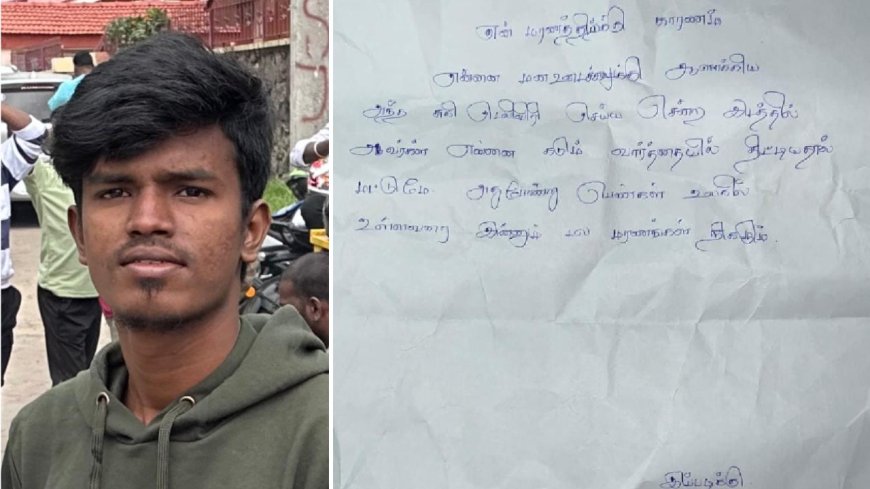 என் மரணத்திற்க்கு காரணம்
என்னை மன உளைச்சலுக்கு ஆளாக்கிய
அந்த செய்ய சென்ற இடத்தில்
அவர்கள் என்னை கடும் வார்த்தையில் திட்டியதால்
மட்டுமே. அதுபோன்ற பெண்கள் உலகில்
உள்ளவரை இன்னும் பல மரணங்கள் நிகழும்.
இப்படிக்கு